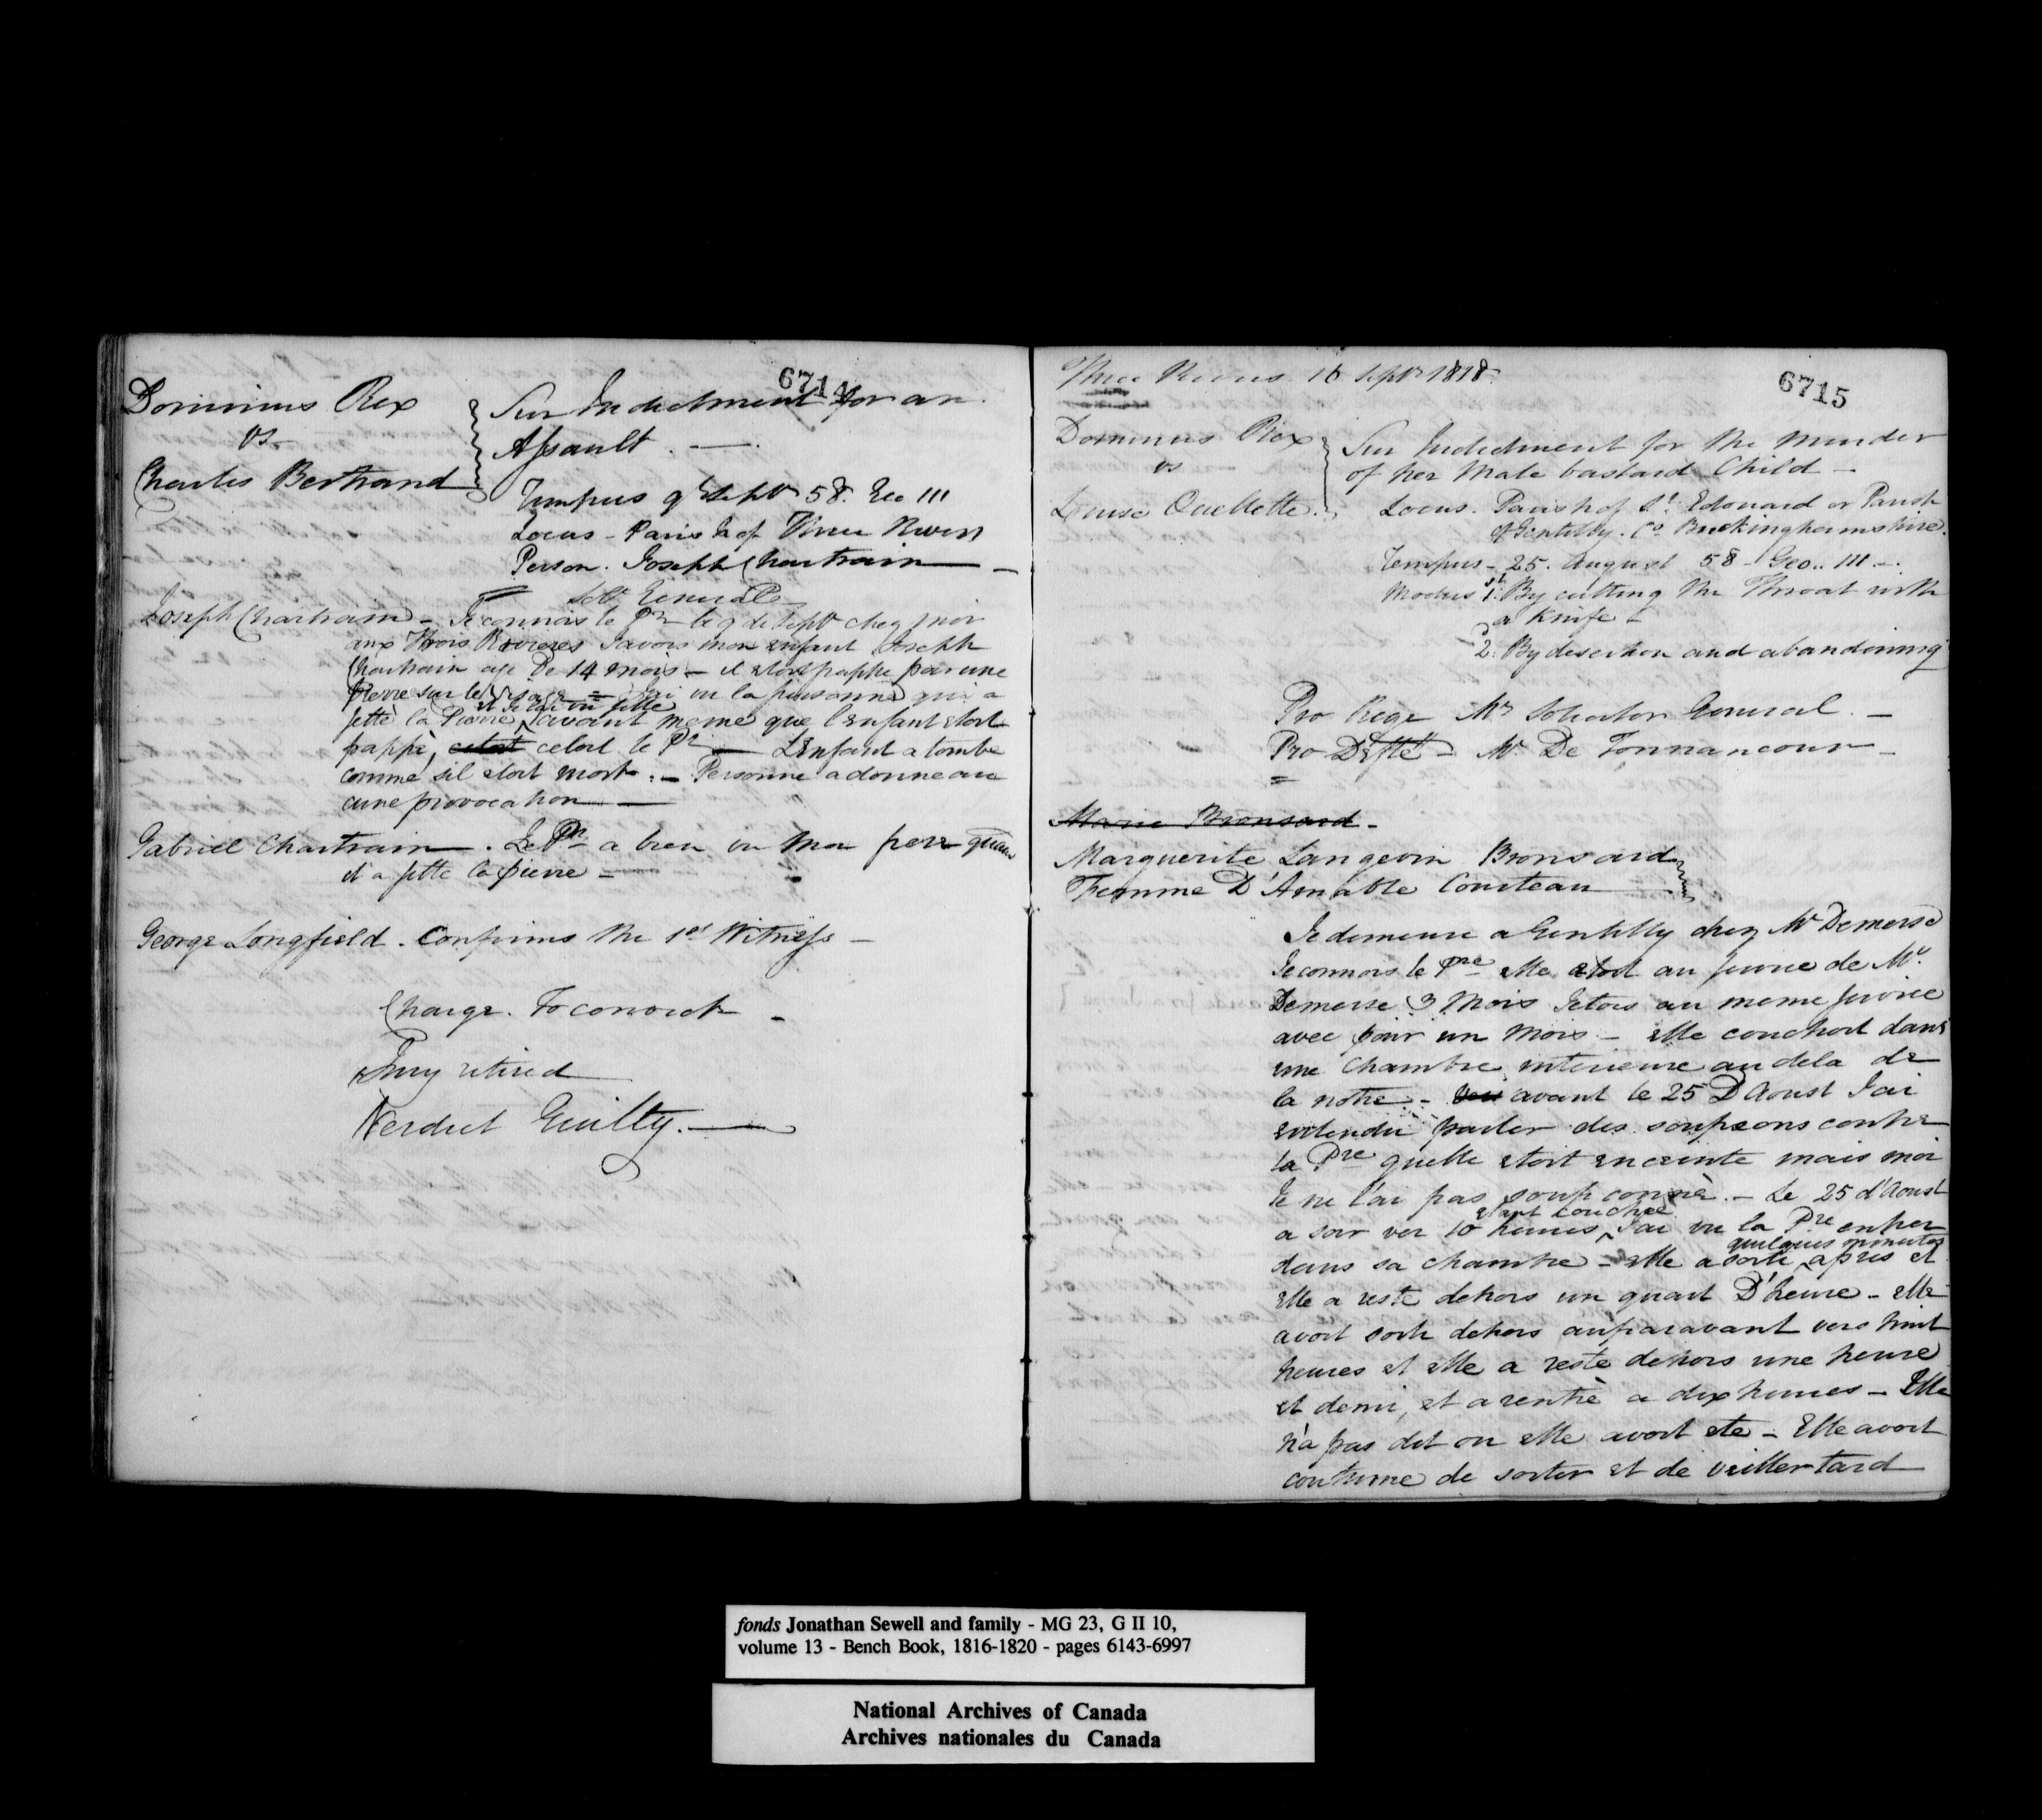 6714
Dominus Rex
vs
Charles Bertrand
Sur Indictment for an
Assault. —
Tempus 9 Septr 58. Geo III
Locus - Parish of Three Rivers
Person. Joseph Chartrain —
Solr General Pr
Joseph Chartrain - Je connois le Pr le 9 de Septr chez moi
aux Trois Rivieres J'avois mon enfant Joseph
Chartrain age De 14 mois - il etoit frappe par une
Pierre sur le visage = J'ai vu la personne qui a
et Je l'ai vu jetté
jetté la Pierre, avant meme que l'Enfant etoit
frappé, cetoit cetoit le Pr — L'Enfant a tombe
comme s'il etoit mort. - Personne a donne au
cune provocation —
Gabriel Chartrain. Le Pr a bien vu mon pere quand
il a jetté la pierre -
George Longfield. Confirms the 1st Witness -
Charge. To convict -
Jury retired
Verdict Guilty. —
Three Rivers 16 Septr 1818.
6715
Dominus Rex
vs
Louise Ouellette.
Sur Indictment for the Murder
of her Male bastard Child -
Locus. Parish of St. Edouard or Parish
of Gentilly. Co Buckinghamshire.
Tempus - 25. August 58 - Geo.. III -.
Modus 1st. By cutting the Throat with
a Knife -
2d. By desertion and abandoning
Pro Rege Mr Solicitor General. -
Pro Defte - Mr. De Tonnancour -
Marie Bronsard -
Marguerite Langevin Bronsard
Femme D'Amable Courteau
Je demeure a Gentilly chez Mr Demerse
Je connois le Pre elle etoit au service de Mr.
Demerse 3 Mois J'etois au meme service
avec pour un mois - elle couchoit dans
une Chambre interieure au dela de
la notre - avant le 25 D'Aoust J'ai
entendu parler des soupsons contre
la Pre quelle etoit enceinte mais moi
Je ne l'ai pas soupconnè. - Le 25 d'Aoust
etant couchée
a soir ver 10 heures, J'ai vu la Pre entrer
quelques minutes
dans sa chambre - elle a sorti apres et
elle a resté dehors un quart D'heure - elle
avoit sorti dehors auparavant vers huit
heures et elle a resté dehors une heure
et demi, et a rentré a dix heures - Elle
n'a pas dit ou elle avoit ete - Elle avoit
coutume de sortir et de veiller tard
fonds Jonathan Sewell and family - MG 23, G II 10,
volume 13 - Bench Book, 1816-1820 - pages 6143-6997
National Archives of Canada
Archives nationales du Canada